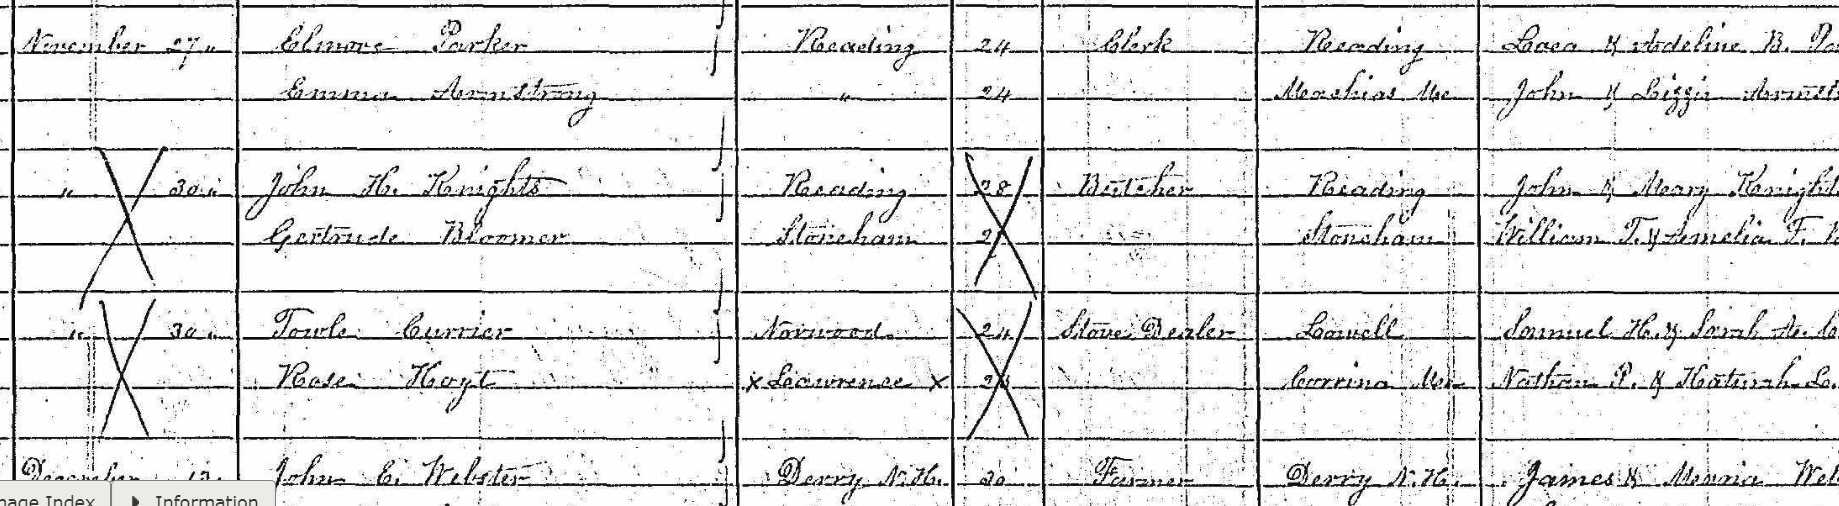 November 27 " Elmore Parker Reading 24 Clerk Reading Loea & Adeline B.
Emma Armstrong " 24 Machias Me John & Lizzie
" 30 " John H. Knights Reading 28 Butcher Reading John & Mary Knight
Gertrude Bloomer Stoneham 2 Stoneham William T. & Amelia F.
" 30 " Towle Currier Norwood 24 Stove Dealer Lowell Samuel H. & Sarah A.
Rose Hoyt x Lawrence x 2 Corrina Me Nathan P. & Katurah
December John E. Webster Derry N.H. 30 Farmer Derry N.H. James &
Index Information